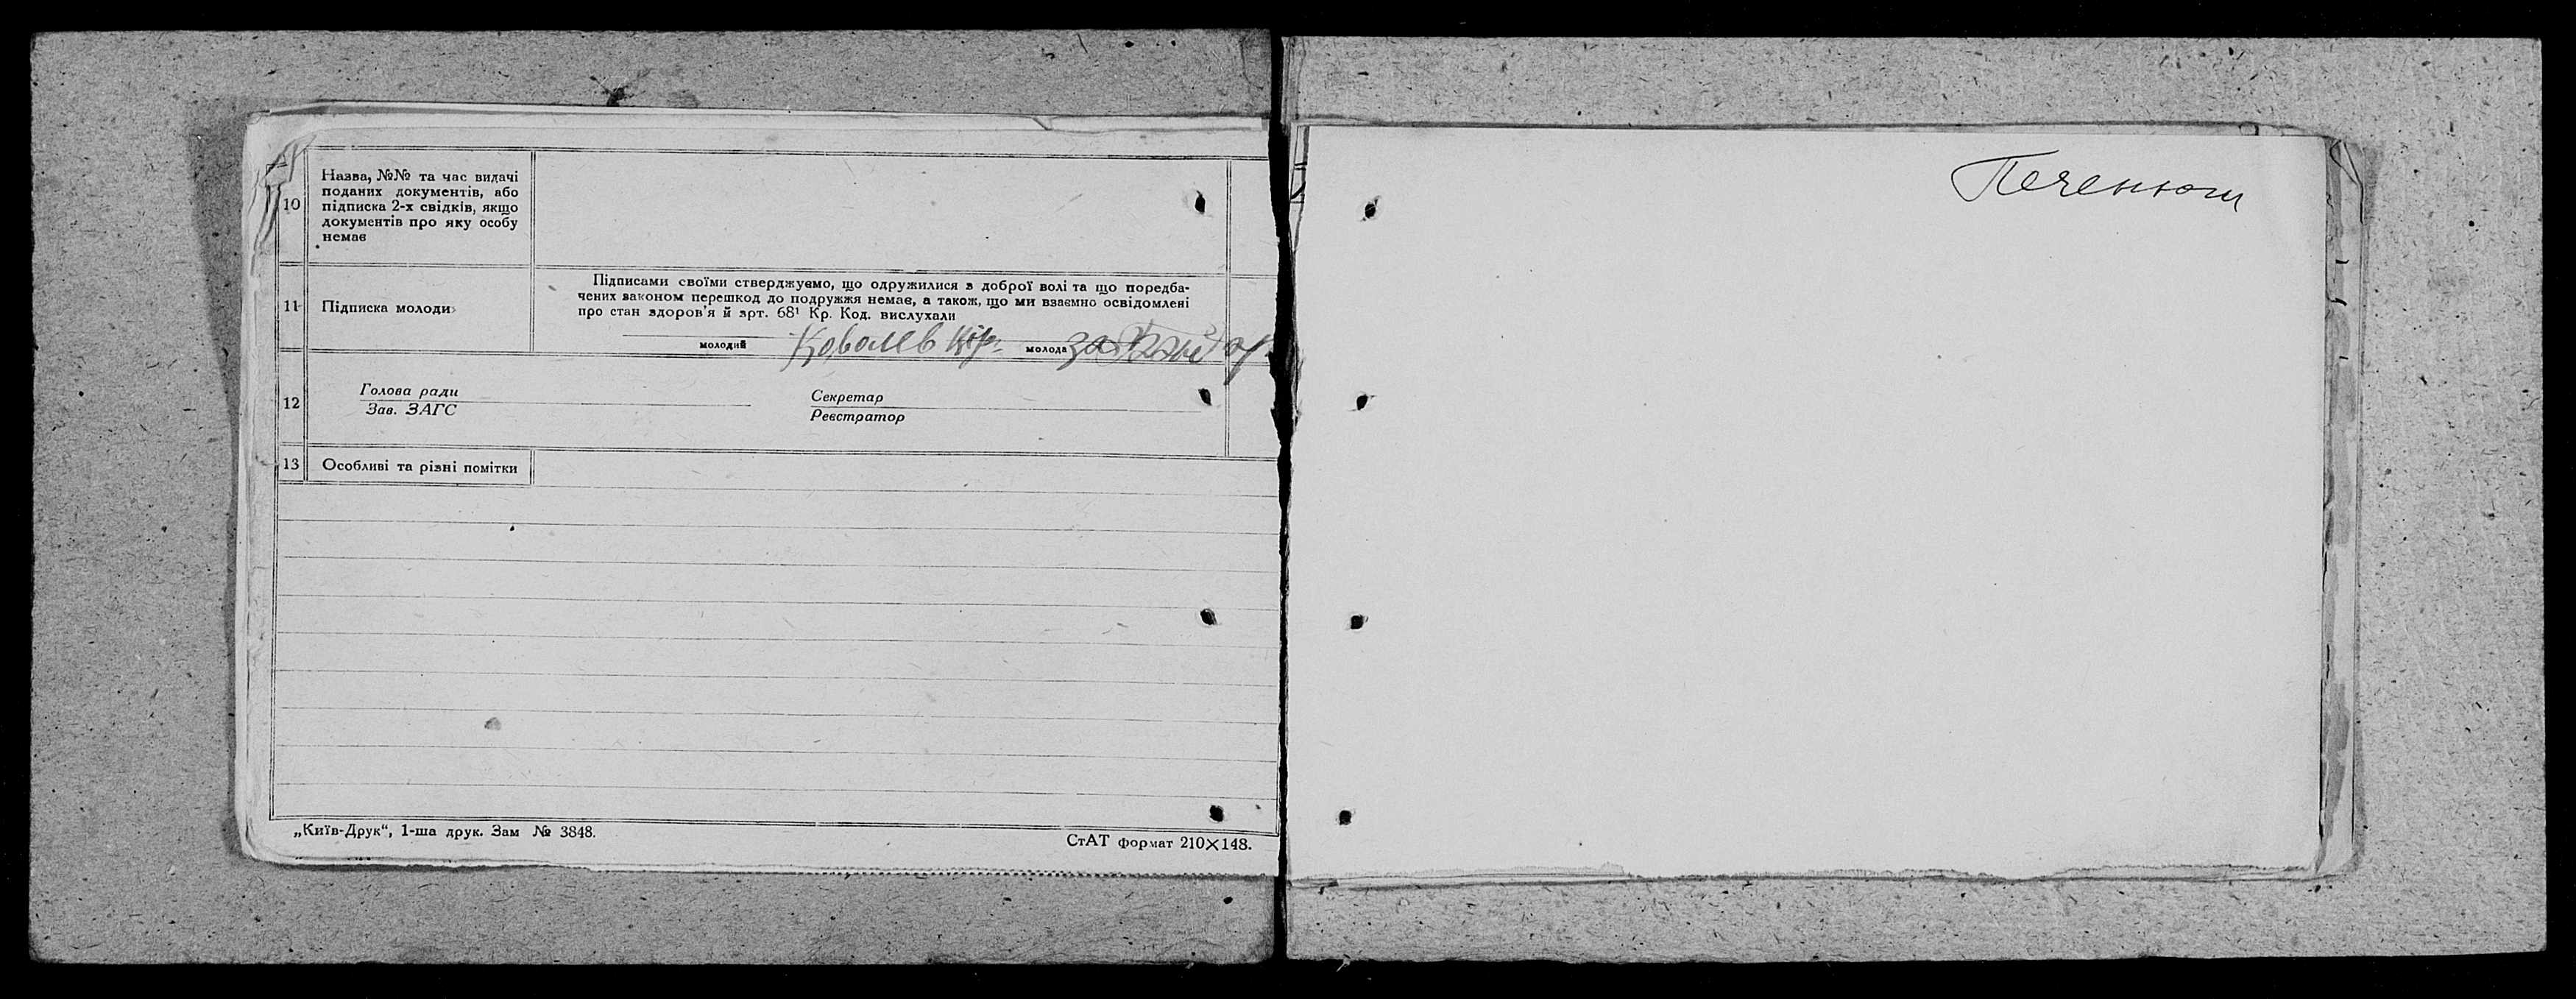 10
Назва, №№ та час видачі
поданих документів, або
підписка 2-х свідків, якщо
документів про яку особу
немає
11
Підписка молоди
Підписами своїми стверджуємо, що одружилися з доброї волі та що поредба-
чених законом перешкод до подружжя немає, а також, що ми взаємно освідомлені
про стан здоров'я й зрт. 68¹ Кр. Код. вислухали
молодий Ковалев молода за
12
Голова ради
Зав. ЗАГС
Секретар
Реєстратор
13
Особливі та різні помітки
„Київ-Друк“, 1-ша друк. Зам № 3848.
СтАТ формат 210×148.
Печенюги